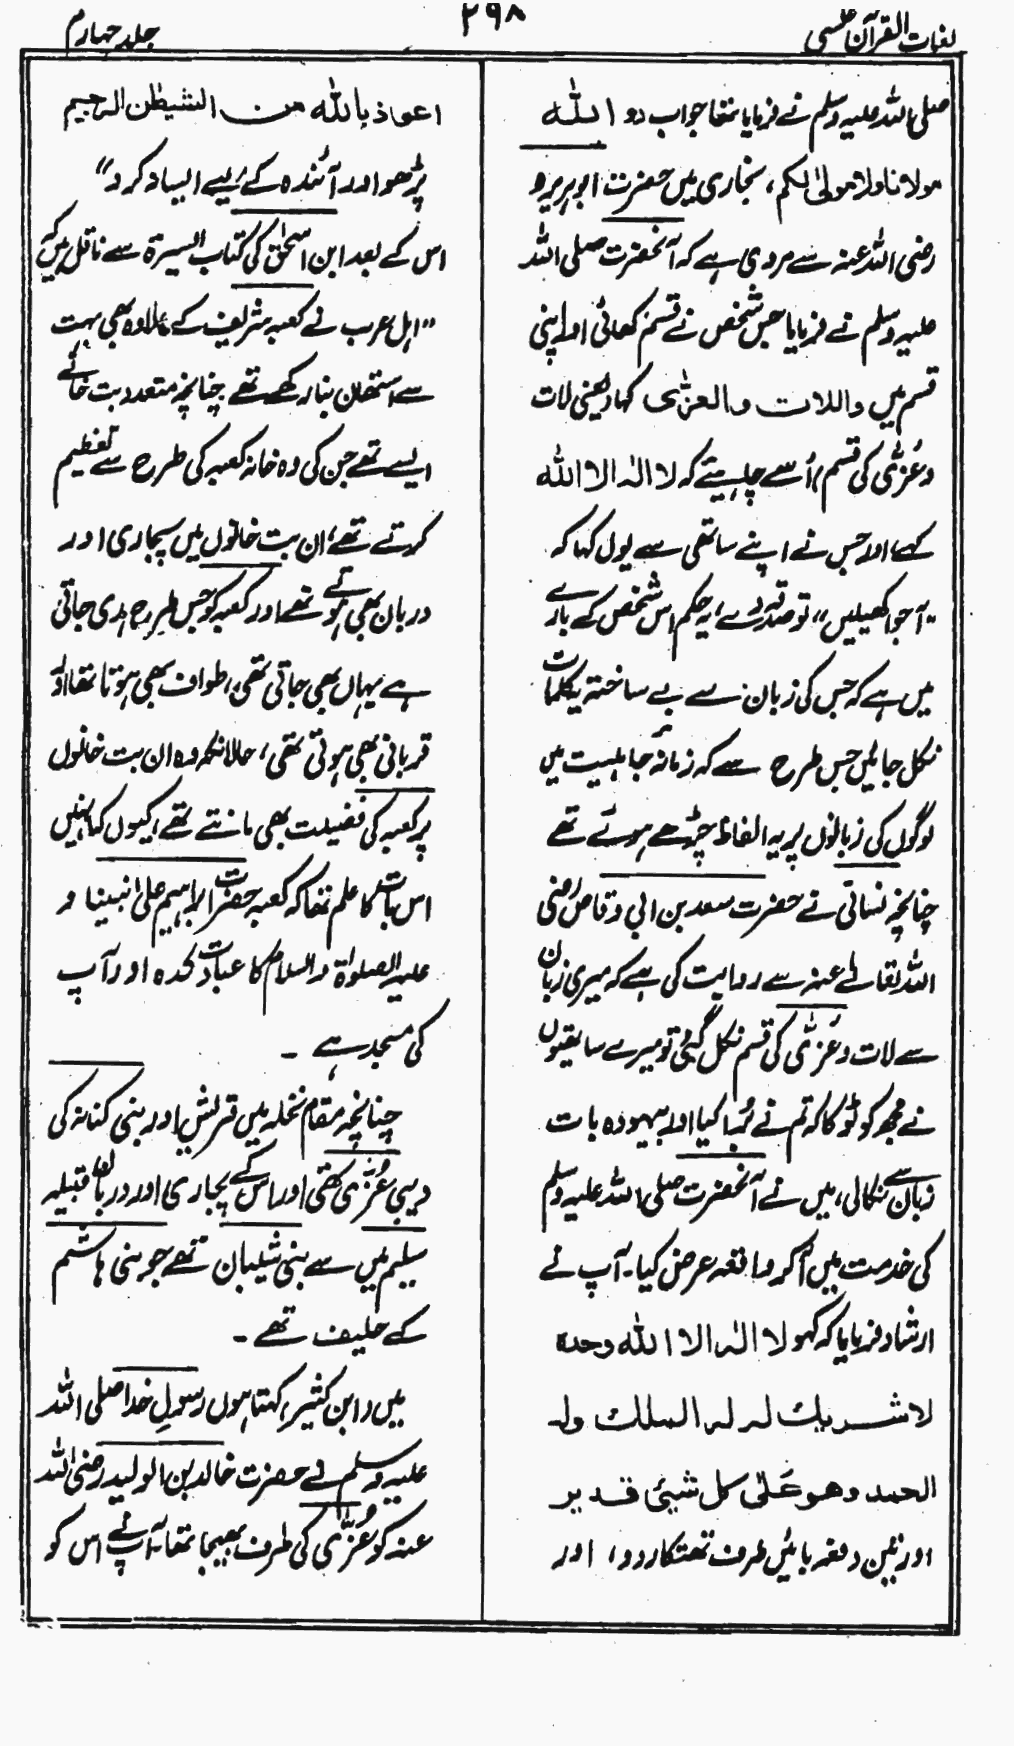 لغات القرآن عکسی
۲۹۸
جلد چہارم
صلی اللہ علیہ وسلم نے فرمایا تھا جواب دو اللّٰہ
مولانا ولا مولیٰ لکم، بخاری میں حضرت ابوہریرہ
رضی اللہ عنہ سے مروی ہے کہ آنحضرت صلی اللہ
علیہ وسلم نے فرمایا جس شخص نے قسم کھائی اور اپنی
قسم میں واللات والعزّٰی کہا (یعنی لات
و عُزّٰی کی قسم) اُسے چاہیئے کہ لا الہ الا اللہ
کہے اور جس نے اپنے ساتھی سے یوں کہا کہ
"آ جوا کھیلیں" تو صدقہ دے، یہ حکم اس شخص کے بارے
میں ہے کہ جس کی زبان سے بے ساختہ یہ کلمات
نکل جائیں جس طرح سے کہ زمانہ جاہلیت میں
لوگوں کی زبانوں پر یہ الفاظ چڑھے ہوئے تھے
چنانچہ نسائی نے حضرت سعد بن ابی وقاص رضی
اللہ تعالےٰ عنہ سے روایت کی ہے کہ میری زبان
سے لات و عُزّٰی کی قسم نکل گئی تو میرے ساتھیوں
نے مجھ کو ٹوکا کہ تم نے بُرا کیا اور بیہودہ بات
زبان سے نکالی، میں نے آنحضرت صلی اللہ علیہ وسلم
کی خدمت میں آکر واقعہ عرض کیا۔ آپ نے
ارشاد فرمایا کہ کہو لا الٰہ الا اللّٰہ وحدہ
لا شریک لہ لہ الملک ولہ
الحمد وھو علیٰ کل شیئ قدیر
اور تین دفعہ بائیں طرف تھتکار دو، اور
اعوذ باللّٰہ من الشیطٰن الرجیم
پڑھو اور آئندہ کے لیے ایسا نہ کرو"
اس کے بعد ابن اسحٰق کی کتاب السیرۃ سے ناقل ہیں کہ
"اہل عرب نے کعبہ شریف کے علاوہ بھی بہت
سے استھان بنا رکھے تھے چنانچہ متعدد بت خانے
ایسے تھے جن کی وہ خانہ کعبہ کی طرح سے تعظیم
کرتے تھے، ان بت خانوں میں پجاری اور
دربان بھی ہوتے تھے اور کعبہ کو جس طرح ہدی جاتی
ہے یہاں بھی جاتی تھی، طواف بھی ہوتا تھا اور
قربانی بھی ہوتی تھی، حالانکہ وہ ان بت خانوں
پر کعبہ کی فضیلت بھی مانتے تھے، کیوں کہ انہیں
اس بات کا علم تھا کہ کعبہ حضرت ابراہیم علیٰ نبینا و
علیہ الصلوٰۃ والسلام کا عبادت کدہ اور آپ
کی مسجد ہے ۔
چنانچہ مقام نخلہ میں قریش اور بنی کنانہ کی
دیبی عُزّٰی تھی اور اس کے پجاری اور دربان قبیلہ
سلیم میں سے بنی شیبان تھے جو بنی ہاشم
کے حلیف تھے ۔
میں (ابن کثیر) کہتا ہوں رسولِ خدا صلی اللہ
علیہ وسلم نے حضرت خالد بن الولید رضی اللہ
عنہ کو عُزّٰی کی طرف بھیجا تھا۔ آپ نے اس کو